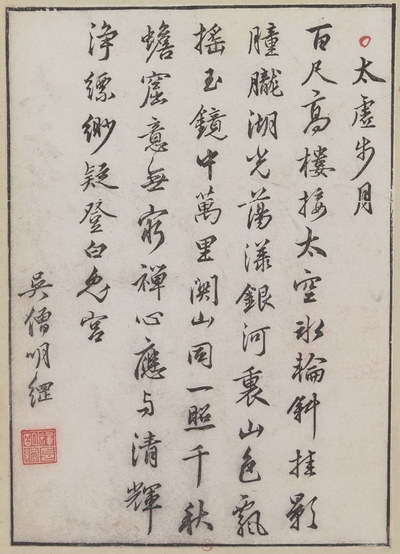 太虛步月
百尺高樓接太空氷輪斜挂影
朣朧湖光蕩漾銀河裏山色飄
搖玉鏡中萬里関山同一照千秋
蟾窟意無窮禪心應与清輝
淨縹緲疑登白兔宮
吳僧明